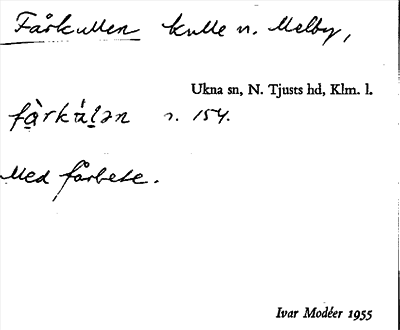 Fårkullen kulle n. Melby,
Ukna sn, N. Tjusts hd, Klm. l.
få̱̀rkù̱lən s. 154.
Med fårbete.
Ivar Modéer 1955